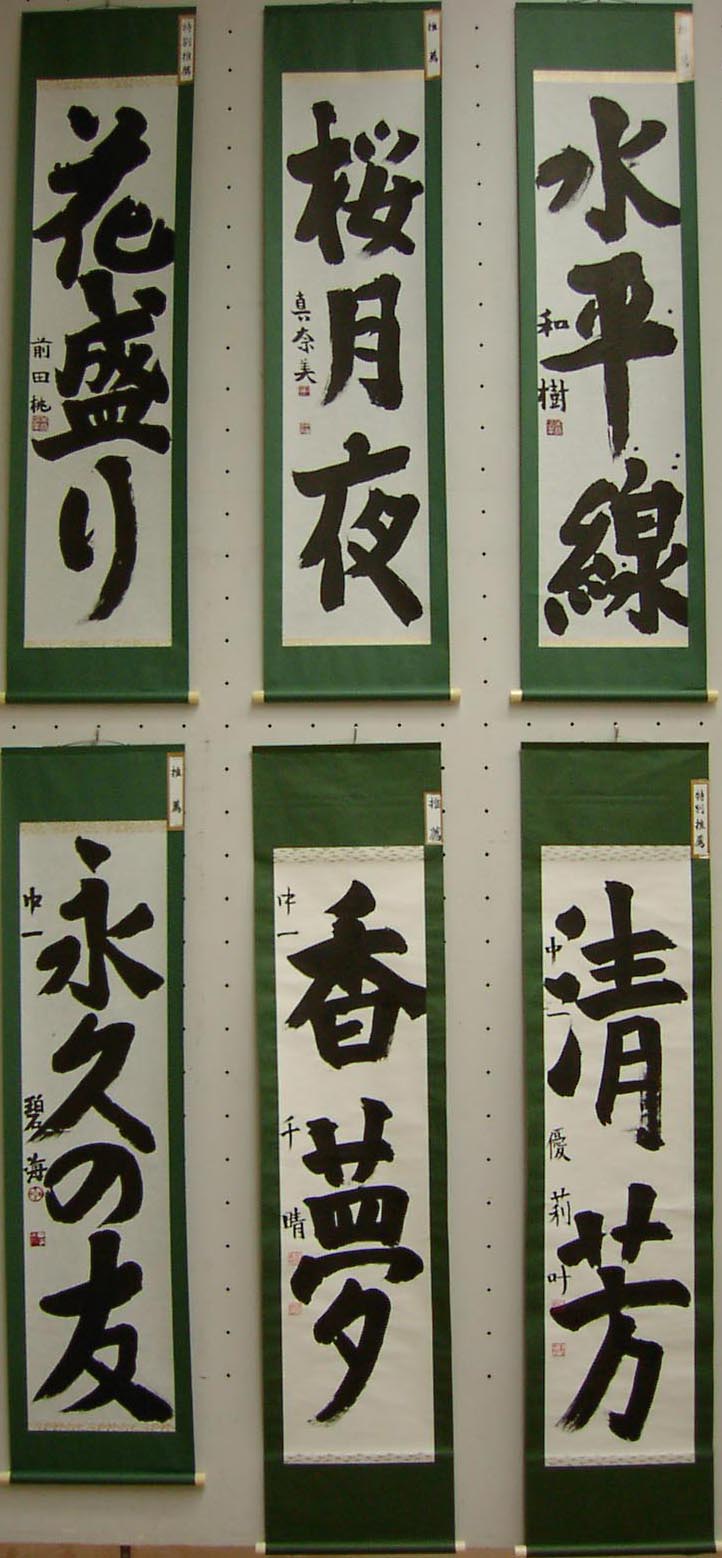 推薦
水平線
和樹
推薦
桜月夜
真奈美
特別推薦
花盛り
前田桃
特別推薦
清芳
中一
優莉叶
推薦
香夢
中一
千晴
推薦
永久の友
中一
碧海